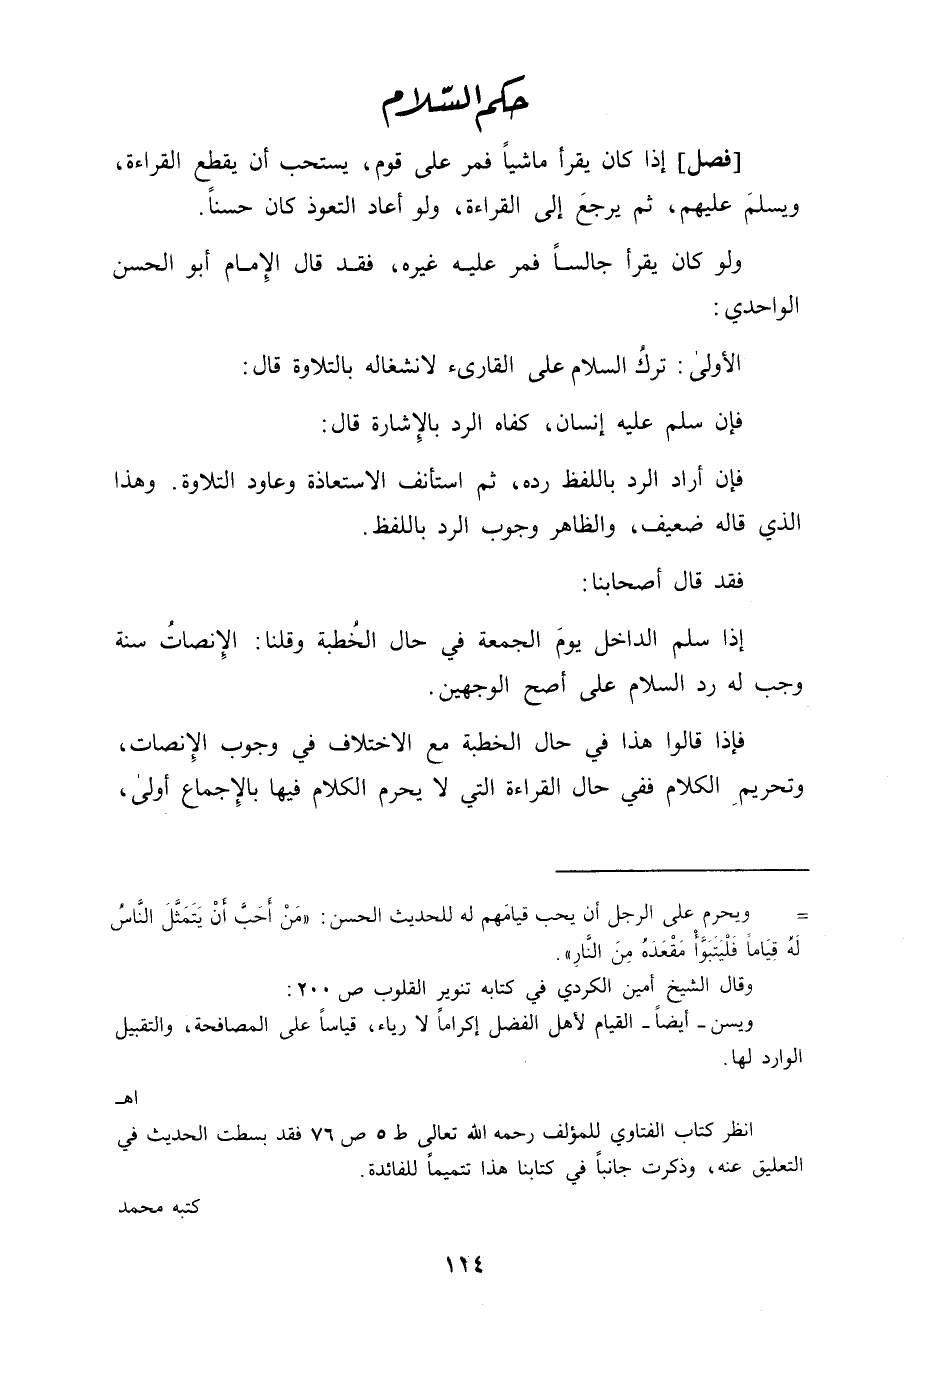 حكم السّلام
[فصل] إذا كان يقرأ ماشياً فمر على قوم، يستحب أن يقطع القراءة،
ويسلمَ عليهم، ثم يرجعَ إلى القراءة، ولو أعاد التعوذ كان حسناً.
ولو كان يقرأ جالساً فمر عليه غيره، فقد قال الإمام أبو الحسن
الواحدي:
الأولىٰ: تركُ السلام على القارىء لانشغاله بالتلاوة قال:
فإن سلم عليه إنسان، كفاه الرد بالإشارة قال:
فإن أراد الرد باللفظ رده، ثم استأنف الاستعاذة وعاود التلاوة. وهذا
الذي قاله ضعيف، والظاهر وجوب الرد باللفظ.
فقد قال أصحابنا:
إذا سلم الداخل يومَ الجمعة في حال الخُطبة وقلنا: الإنصاتُ سنة
وجب له رد السلام على أصح الوجهين.
فإذا قالوا هذا في حال الخطبة مع الاختلاف في وجوب الإنصات،
وتحريمِ الكلام ففي حال القراءة التي لا يحرم الكلام فيها بالإجماع أولىٰ،
= ويحرم على الرجل أن يحب قيامَهم له للحديث الحسن: «مَنْ أَحَبَّ أَنْ يَتَمَثَّلَ النَّاسُ
لَهُ قِيَاماً فَلْيَتَبَوَّأْ مَقْعَدَهُ مِنَ النَّارِ».
وقال الشيخ أمين الكردي في كتابه تنوير القلوب ص ٢٠٠:
ويسن - أيضاً - القيام لأهل الفضل إكراماً لا رياء، قياساً على المصافحة، والتقبيل
الوارد لها.
اهـ
انظر كتاب الفتاوي للمؤلف رحمه الله تعالى ط ٥ ص ٧٦ فقد بسطت الحديث في
التعليق عنه، وذكرت جانباً في كتابنا هذا تتميماً للفائدة.
كتبه محمد
١٢٤